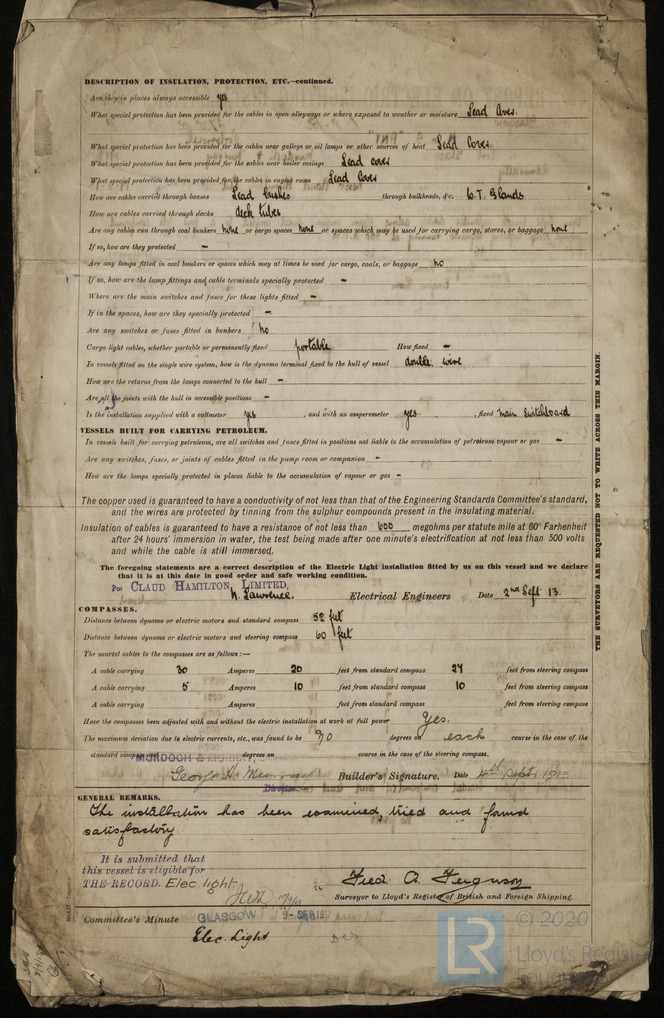 DESCRIPTION OF INSULATION, PROTECTION, ETC.—continued.
Are they in places always accessible yes
What special protection has been provided for the cables in open alleyways or where exposed to weather or moisture Lead Cover
What special protection has been provided for the cables near galleys or oil lamps or other sources of heat Lead Cover
What special protection has been provided for the cables near boiler casings Lead cover
What special protection has been provided for the cables in engine room Lead Cover
How are cables carried through beams Lead bushes through bulkheads, &c. W.T. Glands
How are cables carried through decks deck tubes
Are any cables run through coal bunkers none or cargo spaces none or spaces which may be used for carrying cargo, stores, or baggage none
If so, how are they protected –
Are any lamps fitted in coal bunkers or spaces which may at times be used for cargo, coals, or baggage no
If so, how are the lamp fittings and cable terminals specially protected –
Where are the main switches and fuses for these lights fitted –
If in the spaces, how are they specially protected –
Are any switches or fuses fitted in bunkers no
Cargo light cables, whether portable or permanently fixed portable How fixed –
In vessels fitted on the single wire system, how is the dynamo terminal fixed to the hull of vessel double wire
How are the returns from the lamps connected to the hull –
Are all the joints with the hull in accessible positions –
Is the installation supplied with a voltmeter yes , and with an amperemeter yes , fixed main Switchboard
VESSELS BUILT FOR CARRYING PETROLEUM.
In vessels built for carrying petroleum, are all switches and fuses fitted in positions not liable to the accumulation of petroleum vapour or gas –
Are any switches, fuses, or joints of cables fitted in the pump room or companion –
How are the lamps specially protected in places liable to the accumulation of vapour or gas –
The copper used is guaranteed to have a conductivity of not less than that of the Engineering Standards Committee's standard,
and the wires are protected by tinning from the sulphur compounds present in the insulating material.
Insulation of cables is guaranteed to have a resistance of not less than 600 megohms per statute mile at 60° Farhenheit
after 24 hours' immersion in water, the test being made after one minute's electrification at not less than 500 volts
and while the cable is still immersed.
The foregoing statements are a correct description of the Electric Light installation fitted by us on this vessel and we declare
that it is at this date in good order and safe working condition.
For CLAUD HAMILTON, LIMITED,
N. Lawrence. Electrical Engineers Date 2nd Sept 13.
COMPASSES.
Distance between dynamo or electric motors and standard compass 52 feet
Distance between dynamo or electric motors and steering compass 60 feet
The nearest cables to the compasses are as follows:—
A cable carrying 30 Amperes 20 feet from standard compass 24 feet from steering compass
A cable carrying 5 Amperes 10 feet from standard compass 10 feet from steering compass
A cable carrying Amperes feet from standard compass feet from steering compass
Have the compasses been adjusted with and without the electric installation at work at full power Yes.
The maximum deviation due to electric currents, etc., was found to be degrees on each course in the case of the
standard compass degrees on course in the case of the steering compass.
MURDOCH &
George A. Murray Builder's Signature. Date 4th Sept 1913
GENERAL REMARKS.
The installation has been examined, tried and found
satisfactory.
It is submitted that
this vessel is eligible for
THE RECORD. Elec. light.
Fred A. Ferguson
Surveyor to Lloyd's Register of British and Foreign Shipping.
Committee's Minute GLASGOW 9-SEP 19
Elec. Light
THE SURVEYORS ARE REQUESTED NOT TO WRITE ACROSS THIS MARGIN.
LR
© 2020
Lloyd's Register